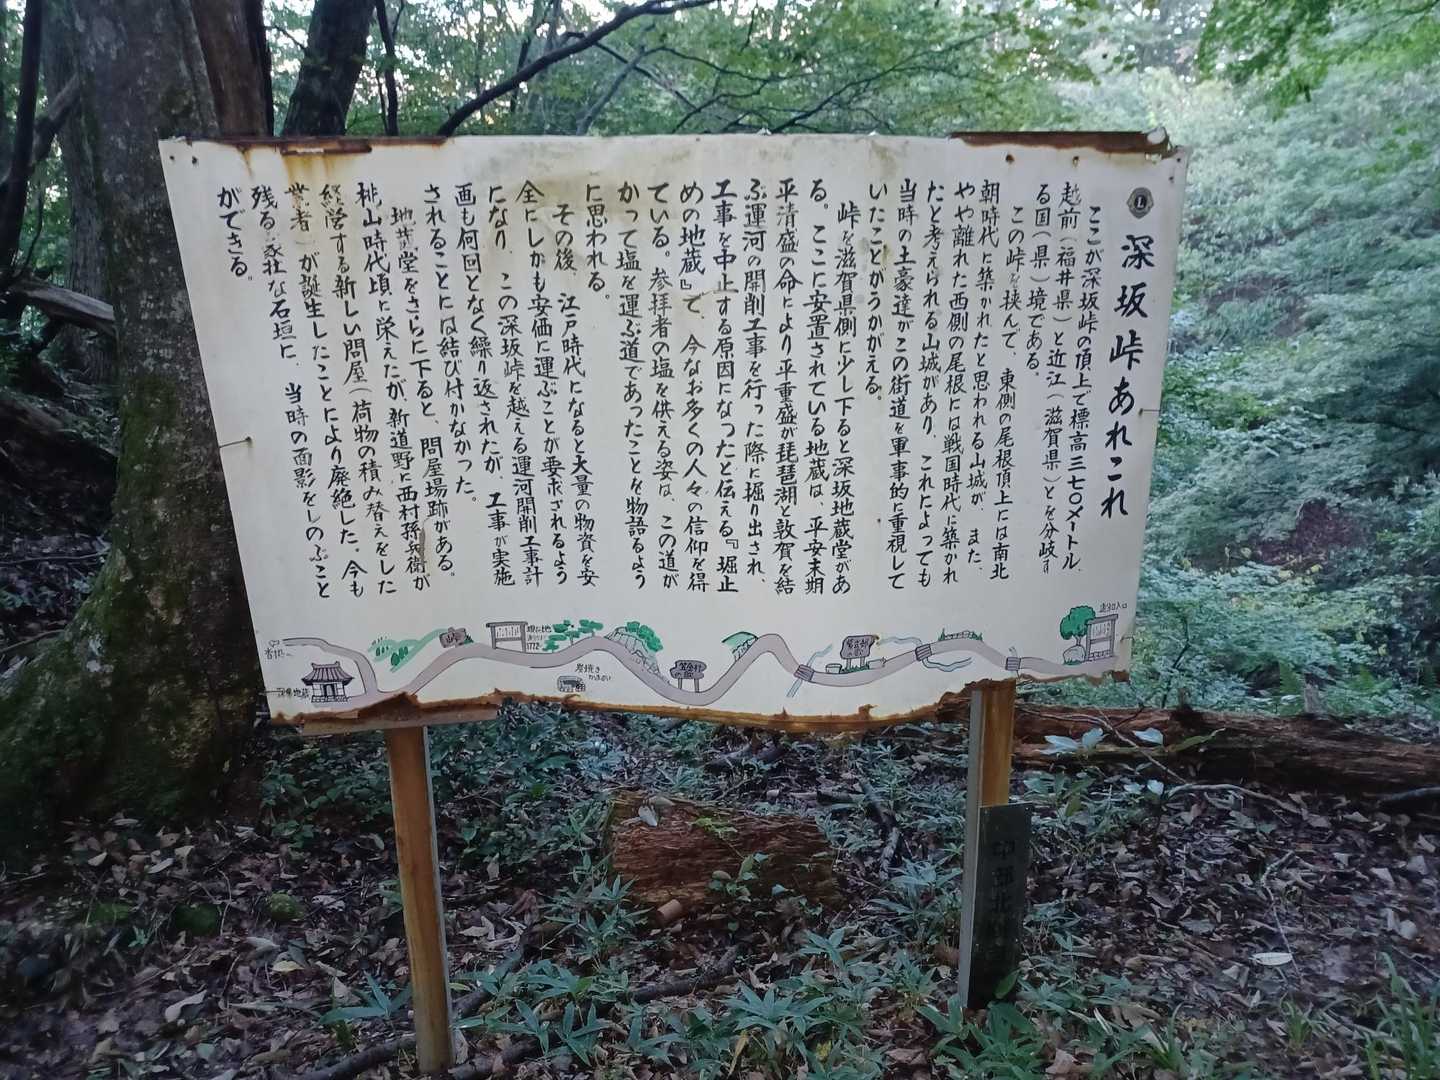 深坂峠あれこれ
ここが深坂峠の頂上で標高三七〇メートル、
越前（福井県）と近江（滋賀県）とを分岐す
る国（県）境である。
この峠を挟んで、東側の尾根頂上には南北
朝時代に築かれたと思われる山城が、また、
やや離れた西側の尾根には戦国時代に築かれ
たと考えられる山城があり、これによっても
当時の土豪達がこの街道を軍事的に重視して
いたことがうかがえる。
峠を滋賀県側に少し下ると深坂地蔵堂があ
る。ここに安置されている地蔵は、平安末期
平清盛の命により平重盛が琵琶湖と敦賀を結
ぶ運河の開削工事を行った際に掘り出され、
工事を中止する原因になったと伝える『堀止
めの地蔵』で、今なお多くの人々の信仰を得
ている。参拝者の塩を供える姿は、この道が
かって塩を運ぶ道であったことを物語るよう
に思われる。
その後、江戸時代になると大量の物資を安
全にしかも安価に運ぶことが要求されるよう
になり、この深坂峠を越える運河開削工事計
画も何回となく繰り返されたが、工事が実施
されることには結び付かなかった。
地蔵堂をさらに下ると、問屋場跡がある。
桃山時代頃に栄えたが、新道野に西村孫兵衛が
経営する新しい問屋（荷物の積み替えをした
業者）が誕生したことにより廃絶した。今も
残る豪壮な石垣に、当時の面影をしのぶこと
ができる。
峠
現在地
炭焼き
かまあと
笠金村
の歌
紫式部
の歌
深坂地蔵
中部北陸